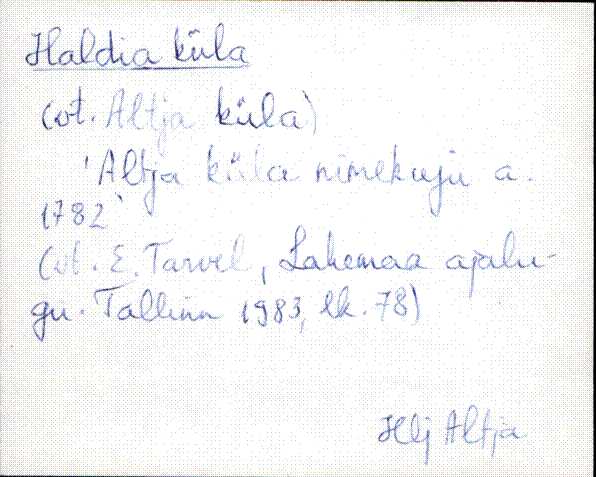 Haldia küla
(vt. Altja küla)
'Altja küla nimekuju a.
1782'
(vt. E. Tarvel, Lahemaa ajalu-
gu. Tallinn 1983, lk. 78)
Hlj Altja